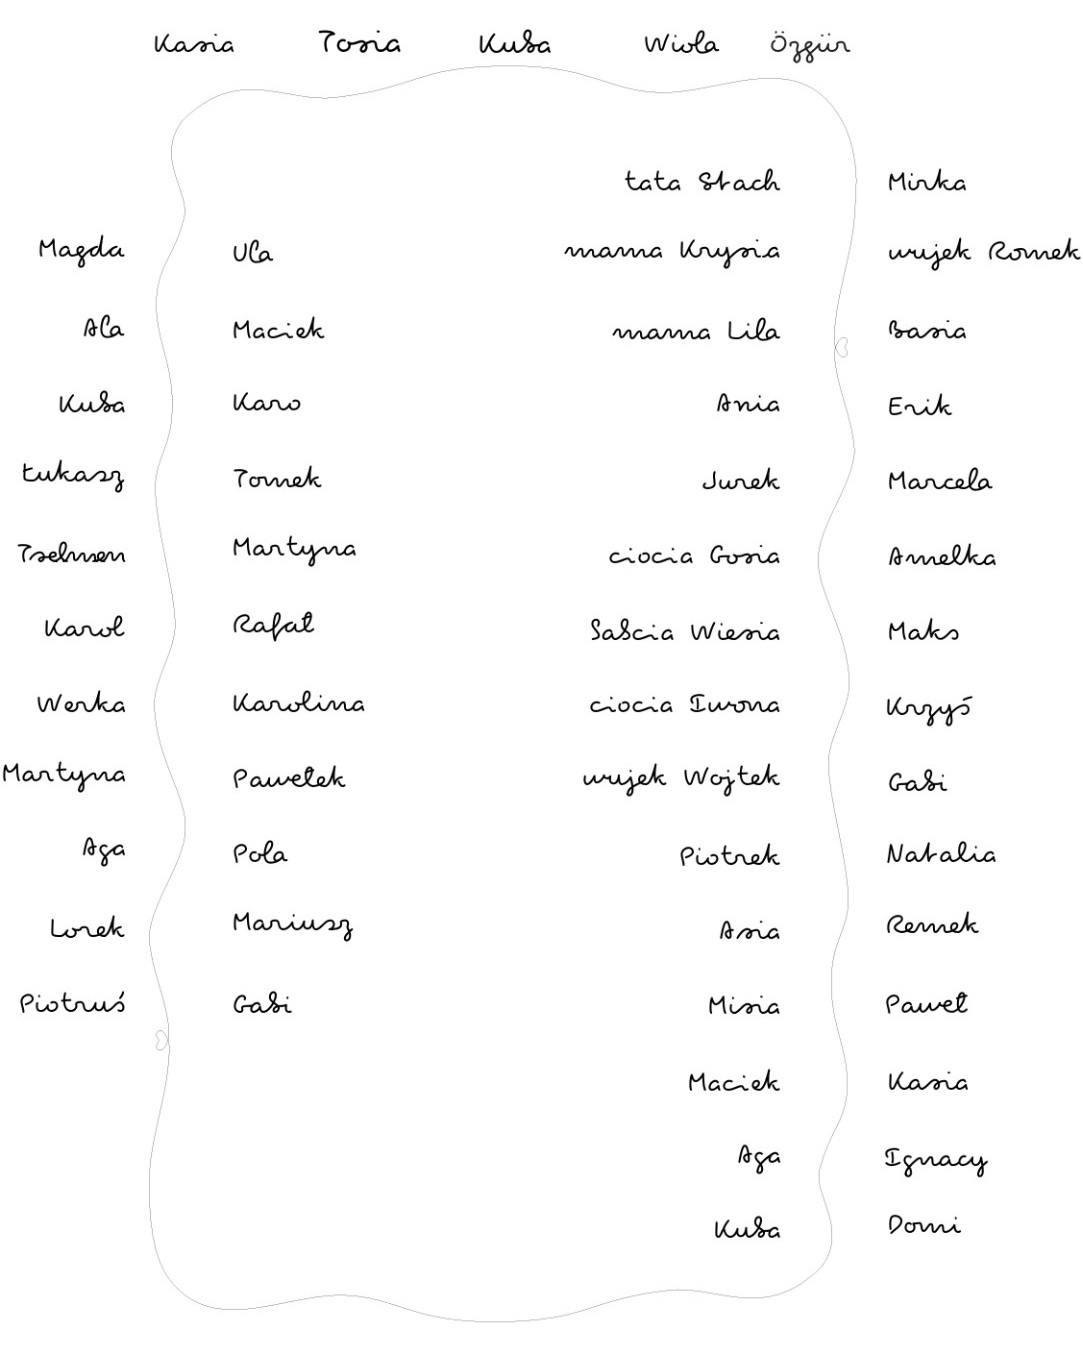 Kasia Tosia Kuba Wiola Özgür
tata Stach Mirka
Magda Ula mama Krysia wujek Romek
Ala Maciek mama Lila Basia
Kuba Karo Ania Erik
Łukasz Tomek Jurek Marcela
Tselmen Martyna ciocia Gosia Amelka
Karol Rafał babcia Wiesia Maks
Werka Karolina ciocia Iwona Krzyś
Martyna Pawełek wujek Wojtek Gabi
Aga Pola Piotrek Natalia
Lorek Mariusz Asia Remek
Piotruś Gabi Misia Paweł
Maciek Kasia
Aga Ignacy
Kuba Domi